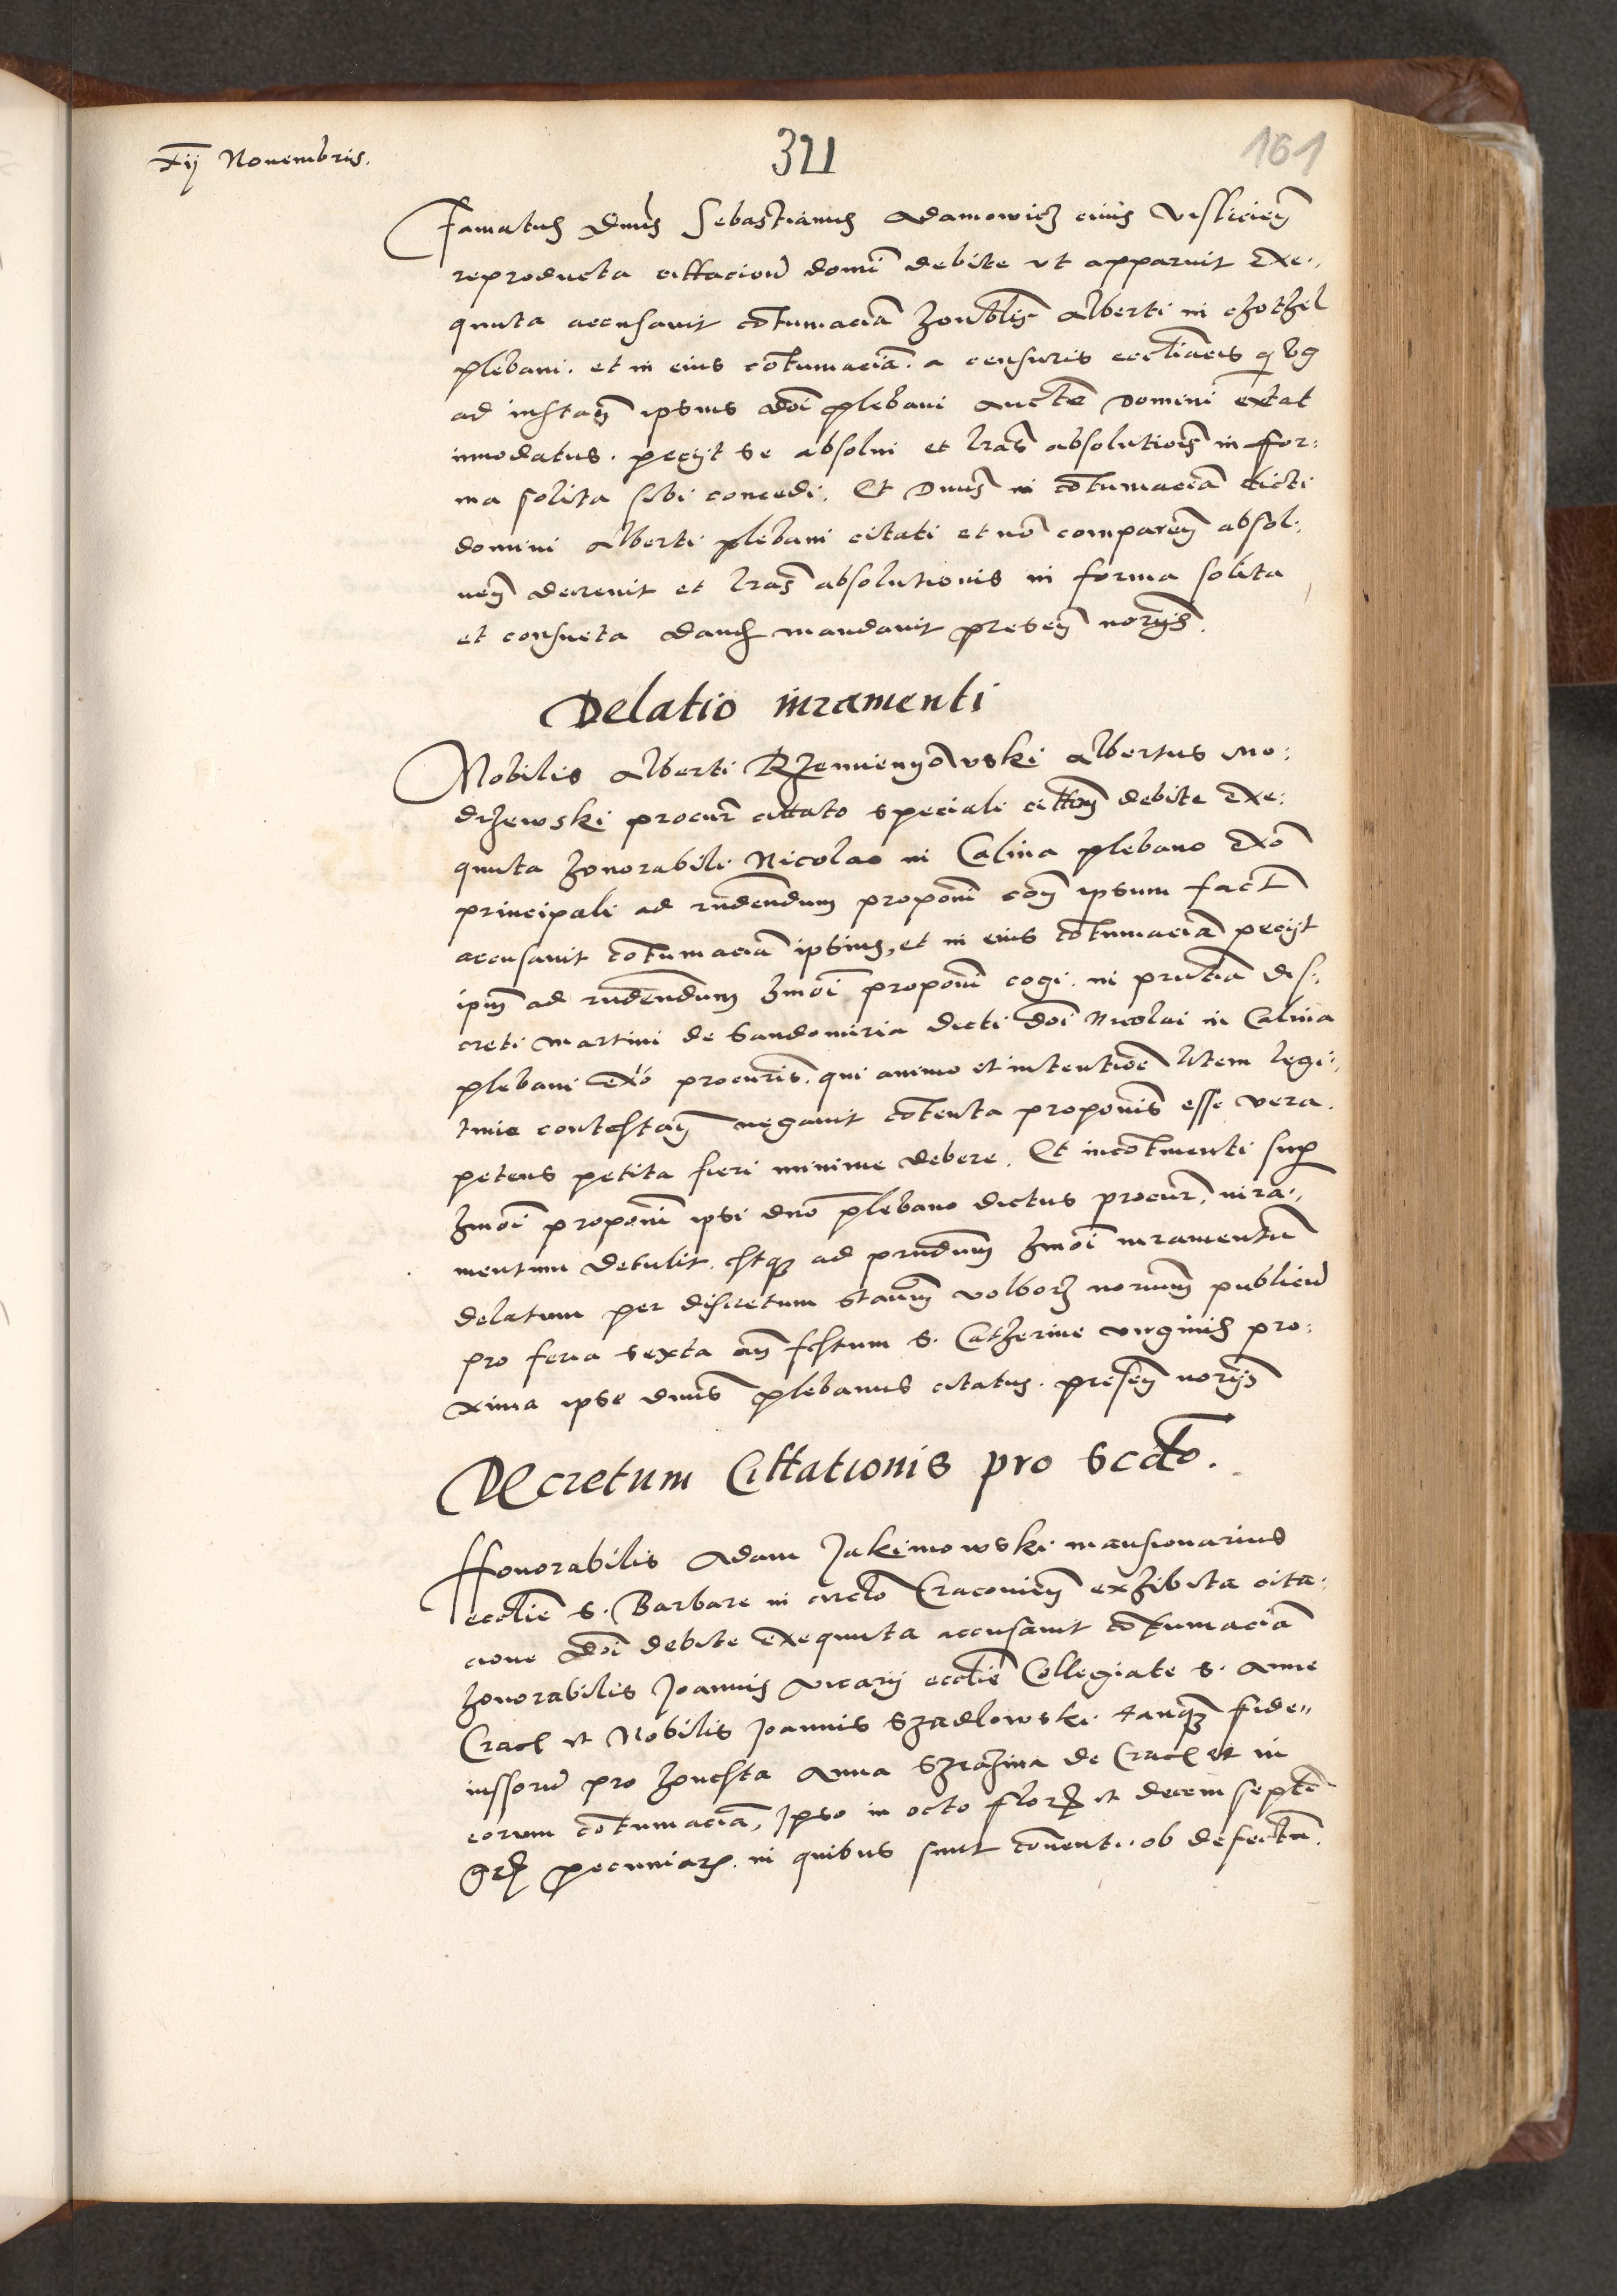 xij Nouembris.
321
161
Famatus dnus Sebastianus Adamowicz ciuis Visliciens
reproducta cittacione domi debite ut apparuit exe
quuta accusauit cotumacia honblis Alberti in
plebani. et in eius cotumacia. a censuris eccliacis qbus
ad instan ipsius doi plebani aucte domini extat
innodatus. pecijt se absolui et lras absolutiois in for:
ma solita sibi concedi. Et Dnus in cotumacia dicti
domini Alberti plebani citati et no comparen absol:
uen decreuit et lras absolutionis in forma solita
et consueta dand mandauit presen norijs.
Delatio iuramenti
Nobilis Alberti Rzemienyowski Albertus Mo:
drzewski procur cittato speciali cittaoe debite exe:
quuta honorabili Nicolao in Calina plebano exo
principali ad rndendum proponi con ipsum fact
accusauit cotumacia ipsius, et in eius cotumacia pecijt
ipm ad rndendum hmoi proponi cogi. in pntia dis:
creti Martini de Sandomiria dicti doi Nicolai in Calina
plebani exo procuris. qui animo et intentioe litem legi:
time contestan negauit cotenta proponis esse vera.
petens petita fieri minime debere. Et incotinenti sup
hmoi proponi ipsi dno plebano dictus procur. iura:
mentum detulit. estque ad prndum hmoi iuramentu
delatum per discretum Stanm Volborz norium publicu
pro feria sexta an festum S. Catherine virginis pro:
xima ipse dnus plebanus citatus. presen norijs
Decretum Cittationis pro scdo.
Honorabilis Adam Jakimowski mansionarius
ecclie S. Barbare in circlo Cracouien exhibita cita:
cione doi debite exequuta accusauit cotumacia
honorabilis Joannis vicarij ecclie Collegiate S. Anne
Crac et Nobilis Joannis Szadlowski tanq fide
iussoru pro honesta Anna de Crac et in
eorum cotumacia, ipso in octo flor et decem septe
gr pecuniar. in quibus sunt conuenti. ob defectu.